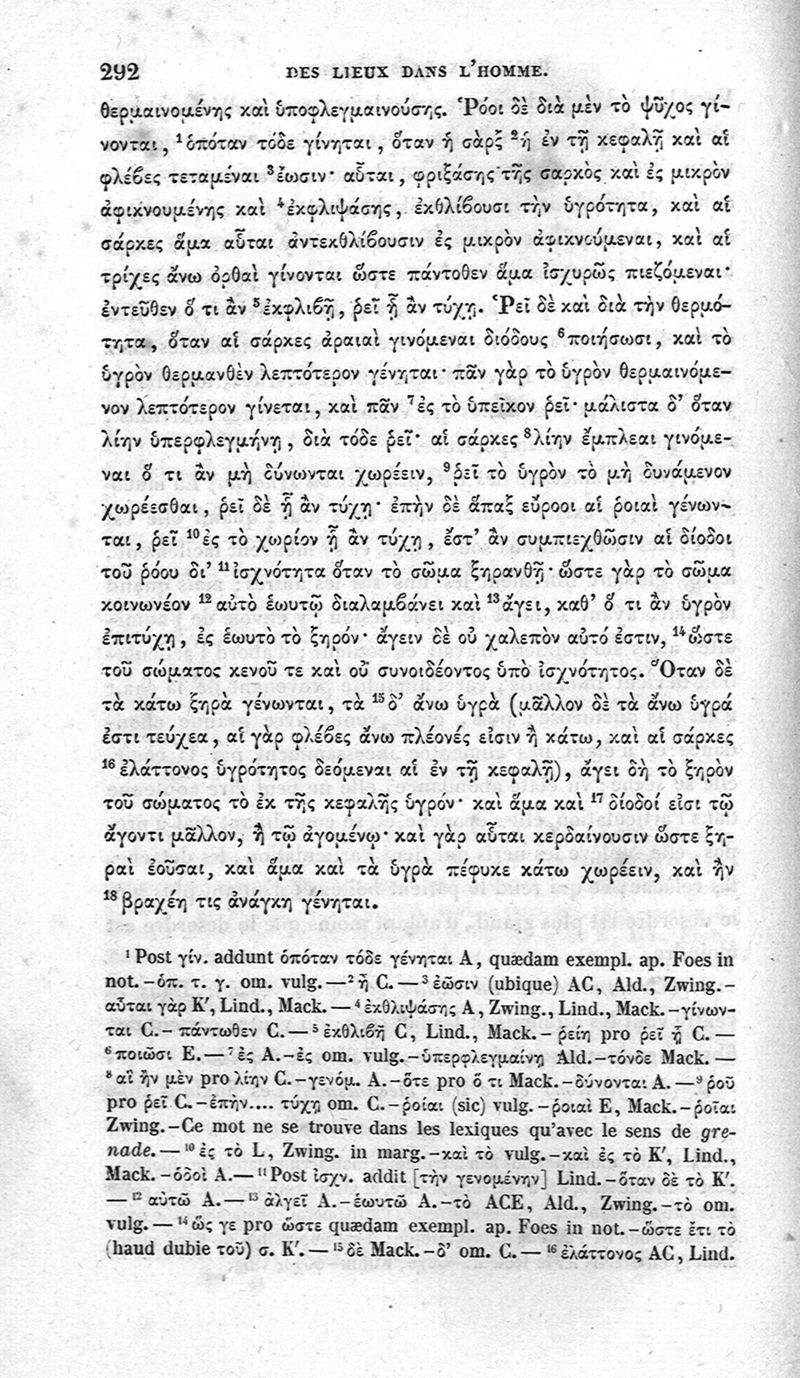 292 DES LIEUX DANS L'HOMME.
θερμαινομένης καὶ ὑποφλεγμαινούσης. Ῥόοι δὲ διὰ μὲν τὸ ψῦχος γί-
νονται, ¹ὁπόταν τόδε γίνηται, ὅταν ἡ σὰρξ ²ἡ ἐν τῇ κεφαλῇ καὶ αἱ
φλέϐες τεταμέναι ³ἔωσιν· αὗται, φριξάσης τῆς σαρκὸς καὶ ἐς μικρὸν
ἀφικνουμένης καὶ ⁴ἐκφλιψάσης, ἐκθλίϐουσι τὴν ὑγρότητα, καὶ αἱ
σάρκες ἅμα αὗται ἀντεκθλίϐουσιν ἐς μικρὸν ἀφικνούμεναι, καὶ αἱ
τρίχες ἄνω ὀρθαὶ γίνονται ὥστε πάντοθεν ἅμα ἰσχυρῶς πιεζόμεναι·
ἐντεῦθεν ὅ τι ἂν ⁵ἐκφλιϐῇ, ῥεῖ ᾗ ἂν τύχῃ. Ῥεῖ δὲ καὶ διὰ τὴν θερμό-
τητα, ὅταν αἱ σάρκες ἀραιαὶ γινόμεναι διόδους ⁶ποιήσωσι, καὶ τὸ
ὑγρὸν θερμανθὲν λεπτότερον γένηται· πᾶν γὰρ τὸ ὑγρὸν θερμαινόμε-
νον λεπτότερον γίνεται, καὶ πᾶν ⁷ἐς τὸ ὑπεῖκον ῥεῖ· μάλιστα δ' ὅταν
λίην ὑπερφλεγμήνῃ, διὰ τόδε ῥεῖ· αἱ σάρκες ⁸λίην ἔμπλεαι γινόμε-
ναι ὅ τι ἂν μὴ δύνωνται χωρέειν, ⁹ῥεῖ τὸ ὑγρὸν τὸ μὴ δυνάμενον
χωρέεσθαι, ῥεῖ δὲ ᾗ ἂν τύχῃ· ἐπὴν δὲ ἅπαξ εὔροοι αἱ ῥοιαὶ γένων-
ται, ῥεῖ ¹⁰ἐς τὸ χωρίον ᾗ ἂν τύχῃ, ἔστ' ἂν συμπιεχθῶσιν αἱ δίοδοι
τοῦ ῥόου δι' ¹¹ἰσχνότητα ὅταν τὸ σῶμα ξηρανθῇ· ὥστε γὰρ τὸ σῶμα
κοινωνέον ¹²αὐτὸ ἑωυτῷ διαλαμϐάνει καὶ ¹³ἄγει, καθ' ὅ τι ἂν ὑγρὸν
ἐπιτύχῃ, ἐς ἑωυτὸ τὸ ξηρόν· ἄγειν δὲ οὐ χαλεπὸν αὐτό ἐστιν, ¹⁴ὥστε
τοῦ σώματος κενοῦ τε καὶ οὐ συνοιδέοντος ὑπὸ ἰσχνότητος. Ὅταν δὲ
τὰ κάτω ξηρὰ γένωνται, τὰ ¹⁵δ' ἄνω ὑγρὰ (μᾶλλον δὲ τὰ ἄνω ὑγρά
ἐστι τεύχεα, αἱ γὰρ φλέϐες ἄνω πλέονές εἰσιν ἢ κάτω, καὶ αἱ σάρκες
¹⁶ἐλάττονος ὑγρότητος δεόμεναι αἱ ἐν τῇ κεφαλῇ), ἄγει δὴ τὸ ξηρὸν
τοῦ σώματος τὸ ἐκ τῆς κεφαλῆς ὑγρόν· καὶ ἅμα καὶ ¹⁷δίοδοί εἰσι τῷ
ἄγοντι μᾶλλον, ἢ τῷ ἀγομένῳ· καὶ γὰρ αὗται κερδαίνουσιν ὥστε ξη-
ραὶ ἐοῦσαι, καὶ ἅμα καὶ τὰ ὑγρὰ πέφυκε κάτω χωρέειν, καὶ ἢν
¹⁸βραχέη τις ἀνάγκη γένηται.
¹ Post γίν. addunt ὁπόταν τόδε γένηται A, quædam exempl. ap. Foes in
not. – ὁπ. τ. γ. om. vulg. — ² ᾖ C. — ³ ἐῶσιν (ubique) AC, Ald., Zwing. –
αὗται γὰρ K', Lind., Mack. — ⁴ ἐκθλιψάσης A, Zwing., Lind., Mack. – γίνων-
ται C. – πάντωθεν C. — ⁵ ἐκθλιϐῇ C, Lind., Mack. – ῥείη pro ῥεῖ ᾗ C. —
⁶ ποιῶσι E. — ⁷ ἐς A. – ἐς om. vulg. – ὑπερφλεγμαίνῃ Ald. – τόνδε Mack. —
⁸ αἳ ἢν μὲν pro λίην C. – γενόμ. A. – ὅτε pro ὅ τι Mack. – δύνονται A. — ⁹ ῥοῦ
pro ῥεῖ C. – ἐπὴν.... τύχῃ om. C. – ῥοίαι (sic) vulg. – ῥοιαὶ E, Mack. – ῥοῖαι
Zwing. – Ce mot ne se trouve dans les lexiques qu'avec le sens de gre-
nade. — ¹⁰ ἐς τὸ L, Zwing. in marg. – καὶ τὸ vulg. – καὶ ἐς τὸ K', Lind.,
Mack. – ὁδοὶ A. — ¹¹ Post ἰσχν. addit [τὴν γενομένην] Lind. – ὅταν δὲ τὸ K'.
— ¹² αὐτῶ A. — ¹³ ἀλγεῖ A. – ἑωυτῶ A. – τὸ ACE, Ald., Zwing. – τὸ om.
vulg. — ¹⁴ ὥς γε pro ὥστε quædam exempl. ap. Foes in not. – ὥστε ἔτι τὸ
(haud dubie τοῦ) σ. K'. — ¹⁵ δὲ Mack. – δ' om. C. — ¹⁶ ἐλάττονος AC, Lind.